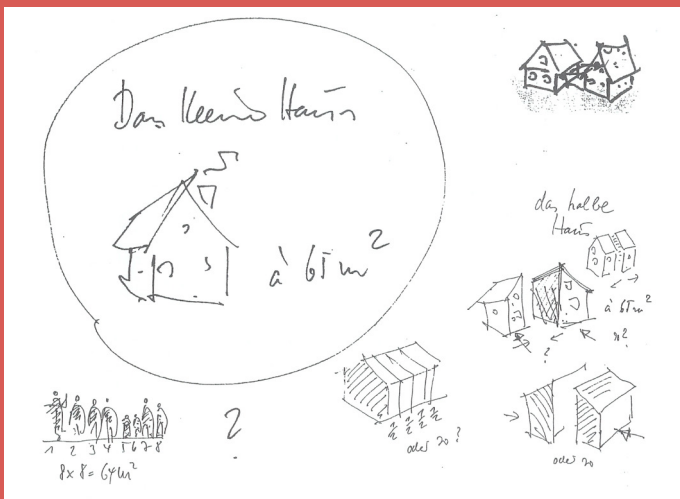 Das kleine Haus
à 65 m²
das halbe
Haus
à 65 m²
n?
?
1 2 3 4 5 6 7 8
8 x 8 = 64 m²
?
1/2 1/2 1/2 1/2
oder so?
oder so